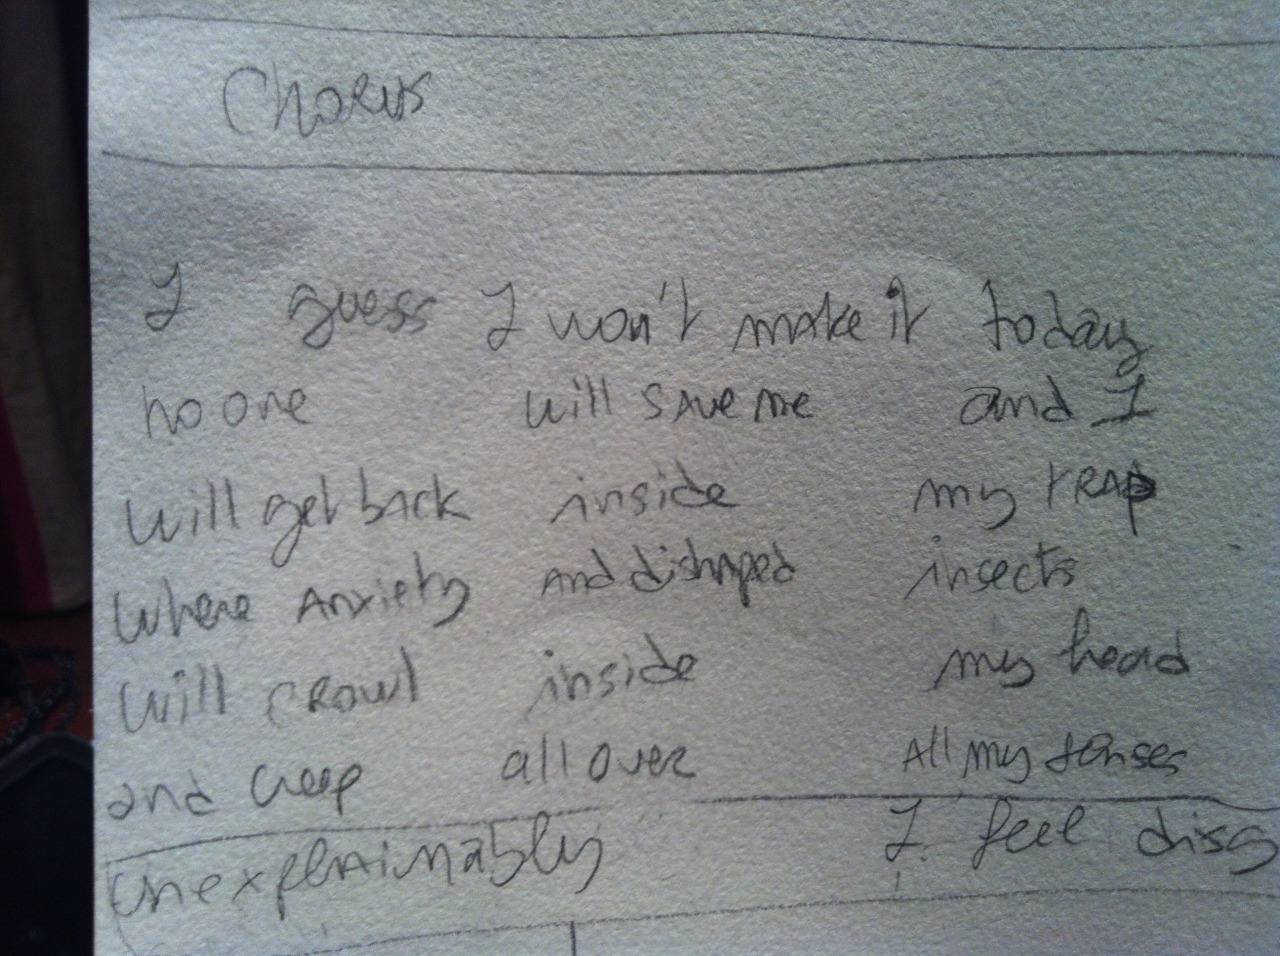 Chorus
I guess I won't make it today
no one will save me and I
will get back inside my trap
where anxiety and dishaped insects
will crowl inside my head
and creep all over all my senses
unexplainably I feel disg